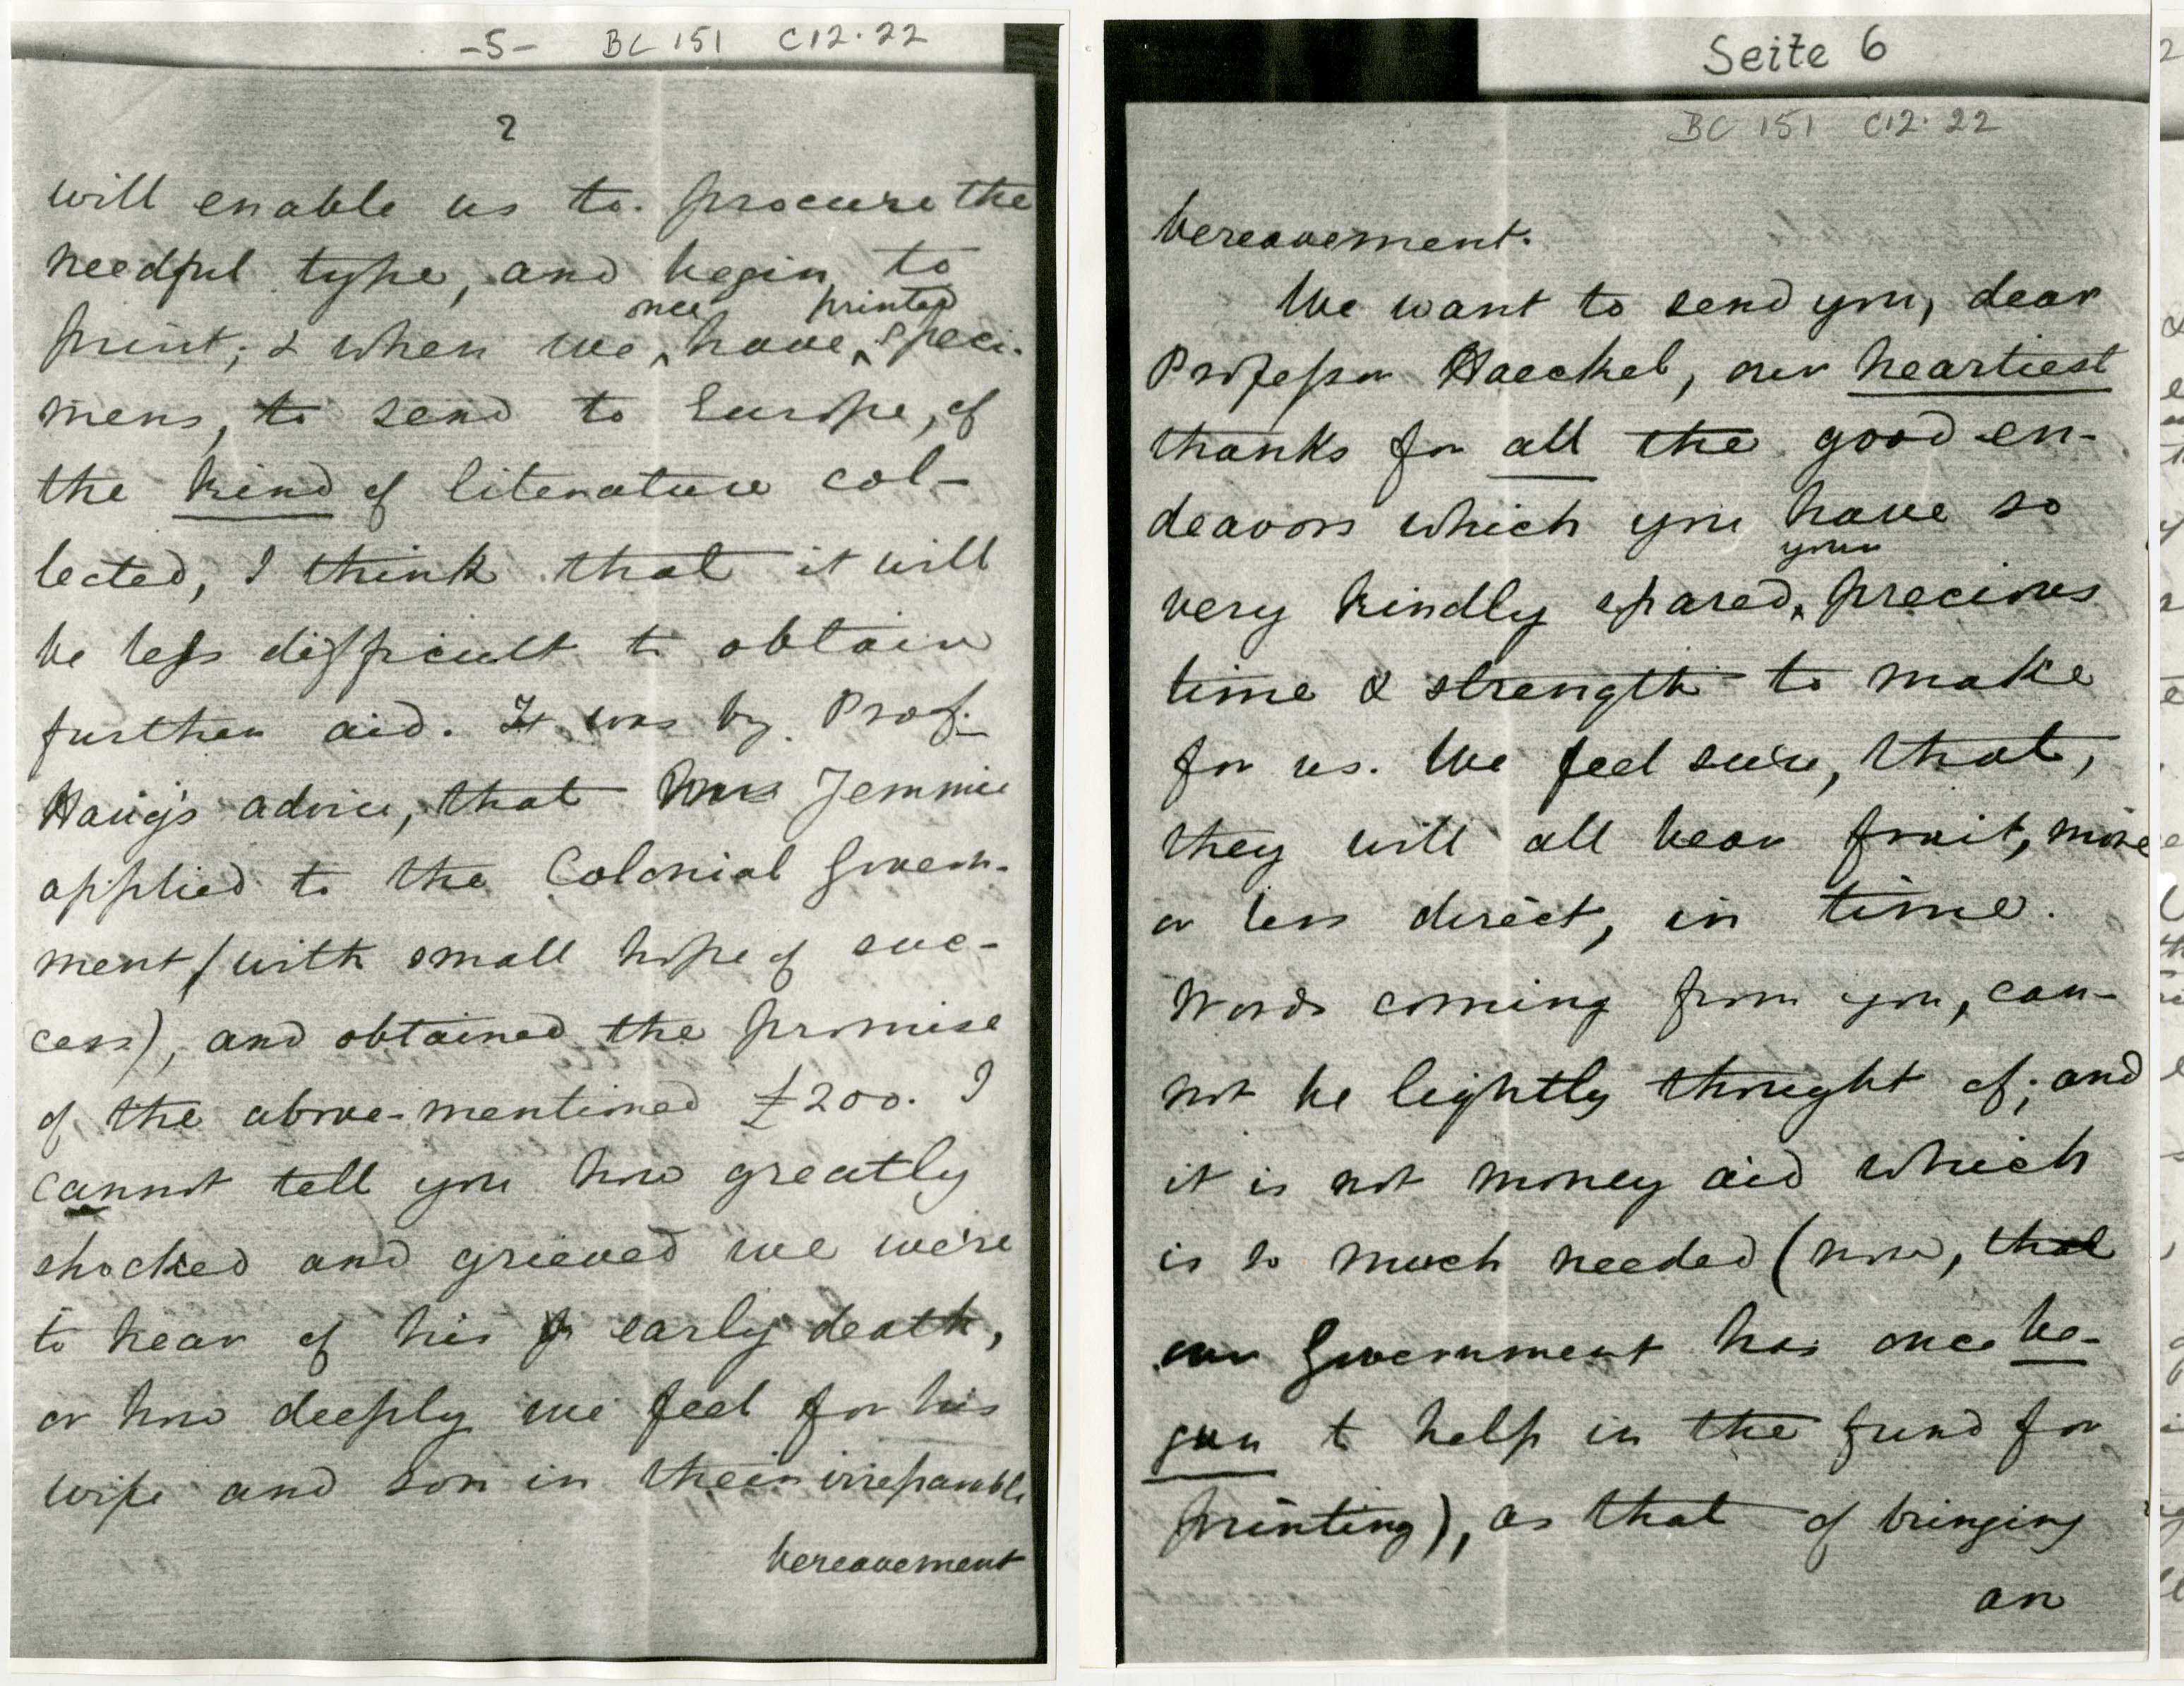 -5- BC 151 C12.22
2
will enable us to procure the
needful type, and begin to
print; & when we once have printed speci-
mens, to send to Europe, of
the kind of literature col-
lected, I think that it will
be less difficult to obtain
further aid. It was by Prof.
Haug's advice, that Jemmie
applied to the Colonial Govern-
ment (with small hope of suc-
cess), and obtained the promise
of the above-mentioned £200. I
cannot tell you how greatly
shocked and grieved we were
to hear of his early death,
or how deeply we feel for his
wife and son in their irreparable
bereavement
Seite 6
BC 151 C12.22
bereavement.
We want to send you, dear
Professor Haeckel, our heartiest
thanks for all the good en-
deavors which you have so
very kindly spared your precious
time & strength to make
for us. We feel sure, that,
they will all bear fruit, more
or less direct, in time.
Words coming from you, can-
not be lightly thought of; and
it is not money aid which
is so much needed (now, that
our Government has once be-
gun to help in the fund for
printing), as that of bringing
an